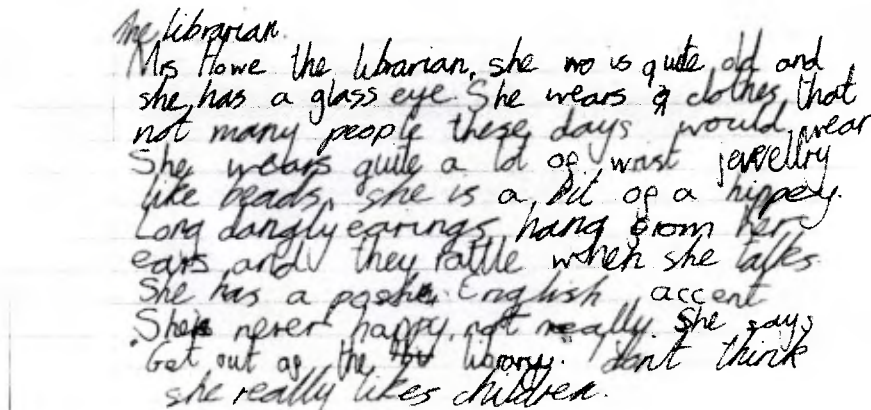 the librarian.
Mrs Howe the librarian, she is quite old and
she has a glass eye. She wears clothes that
not many people these days would wear
She wears quite a lot of wrist jewellry
like beads, she is a bit of a hippey.
Long dangly earings hang from her
ears and they rattle when she talks.
She has a posh English accent
She never happy, not really. She says
Get out of the library. don't think
she really likes children.